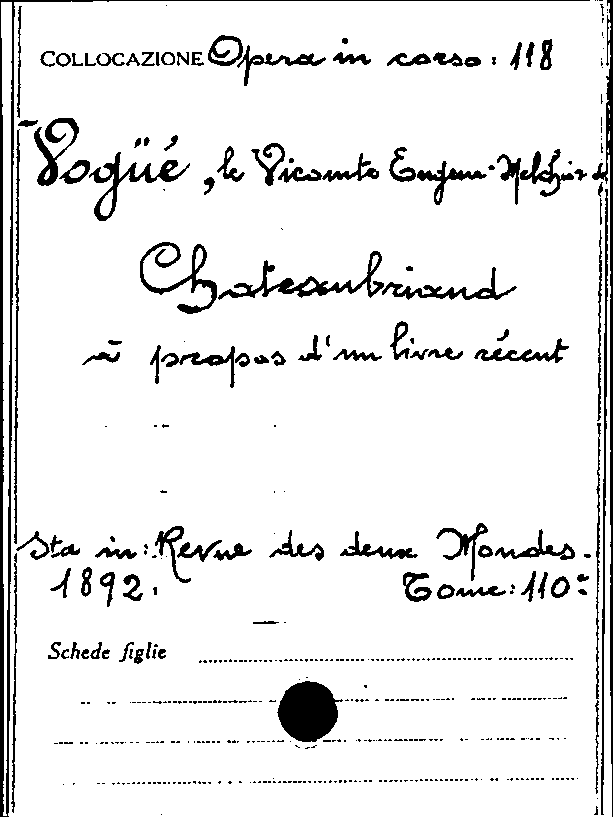 COLLOCAZIONE Opera in corso: 118
Vogüé, le Vicomte Eugène-Melchior de
Chateaubriand
à propos d'un livre récent
Sta in: Revue des deux Mondes.
1892. Tome: 110º
Schede figlie